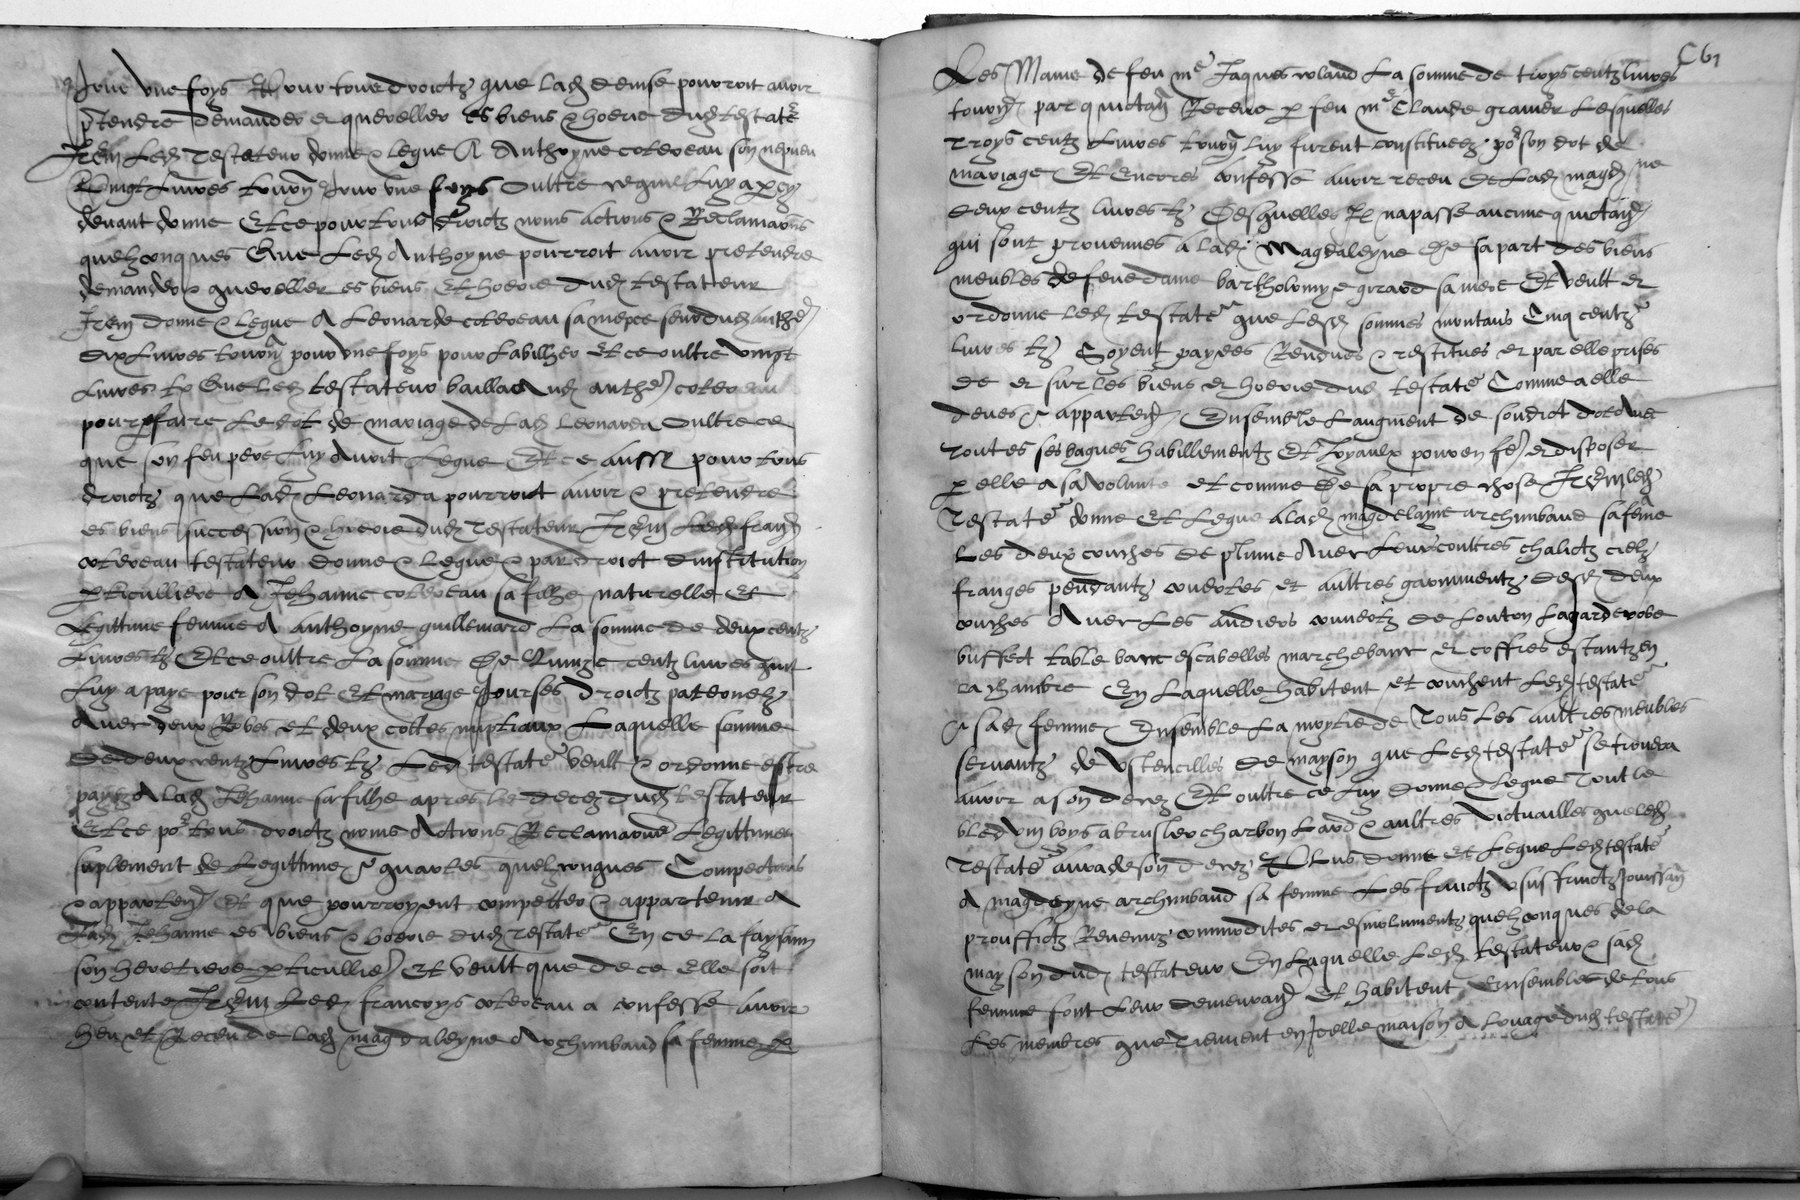 pour une foys Et pour tous droictz que lad denise pourroit avoir
ptendre demander et quereller es biens & hoerie dud testatr
Item led testateur donne & legue A Anthoyne colereau son nepveu
Vingt livres tourn pour une foys oultre
devant donne Et ce pour tous droictz noms actions & Reclamations
quelzconques Que led Anthoyne pourroit avoir pretendre
demander & quereller es biens Et hoerie dud testateur
Item donne & legue A Leonarde colereau sa niepce seur dud anthe
dix livres tourn pour une foys pour labillher Et ce oultre vingt
livres tz Que led testateur bailla Aud anthe colereau
pour pffaire le dot de mariage de lad leonarda oultre ce
que son feu pere luy avoit legue Et ce aussy pour tous
droictz que lad Leonarda pourroit avoir & pretendre
es biens succession & hoerie dud testateur Item led franc
colereau testateur donne & legue & par droict dinstitution
pticulliere A Jehanne colereau sa filhe naturelle Et
legittime femme A anthoyne guillemard La somme de deux centz
livres tz Et ce oultre la somme De quinze centz livres quil
luy a paye pour son dot Et mariage pour ses droictz paternelz
Avec deux Robes et deux cottes nuptiaux Laquelle somme
De deux centz livres tz Led testatr veult & ordonne estre
payez A lad Jehanne sa filhe apres le decez dud testateur
Et ce por tous droictz noms Actions Reclamations Legittime
suplement de legittime & quartes quelzconques Competens
& apparten Et que pourroyent competter & appartenir A
Lad Jehanne es biens & hoerie dud testatr En ce la faysant
son heretiere pticulliere Et veult que de ce elle soit
contente Item Led francoys colereau a confesse avoir
heu et Receu de lad magdaleyne Archimbaud sa femme p
C61
Les Mains de feu me Jaques roland La somme de troys centz livres
tourn par quictan Receue p feu mr Claude granier Lesquelles
troys centz livres tourn luy furent constituees por son dot de
mariage Et Encores confesse avoir receu de lad magdne
deux centz livres tz Desquelles Il na passe aucune quictance
qui sont provenues a lad Magdaleyne De sa part des biens
meubles de feue dame bartholomye girard sa mere Et veult et
ordonne led testatr que lesd sommes montans Cinq centz
livres tz Soyent payees Rendues & restitues et par elle prises
de et sur les biens et hoerie dud testatr Comme a elle
deues & apparten Ensemble laugment de sondict dot Avec
toutes ses bagues habillementz Et Joyaulx pour en fe et disposer
p elle a sa volunte et comme De sa propre chose Item led
testatr donne Et Legue a lad magdelayne archimbaud sa feme
Les deux couches de plume Avec leurs coultres chalictz cielz
franges pendantz couvertes et aultres garniments desd deux
couches Avec les Andiers couvertz de Loutton La garderobe
buffect table banc escabelles marchebanc et coffres estantz en
la chambre En laquelle habitent et couchent led testatr
& sad femme Ensemble La moytie de tous les aultres meubles
servantz de Ustencilles de mayson que led testatr se trouvera
avoir a son decez Et oultre ce luy donne & legue tout le
bled vin boys a brusler charbon Lard & aultres victuailles que led
testatr aura de son decez Plus donne Et Legue Led testatr
A magdeyne archimbaud sa femme Les fruictz usuffruictz Jouissan
prouffictz Revenuz commodites et esmolumentz quelzconques de la
mayson dud testateur En laquelle led testateur & sad
femme font leur demeuran Et habitent Ensembles de tous
Les membres que tiennent en Icelle maison A louage dud testatr